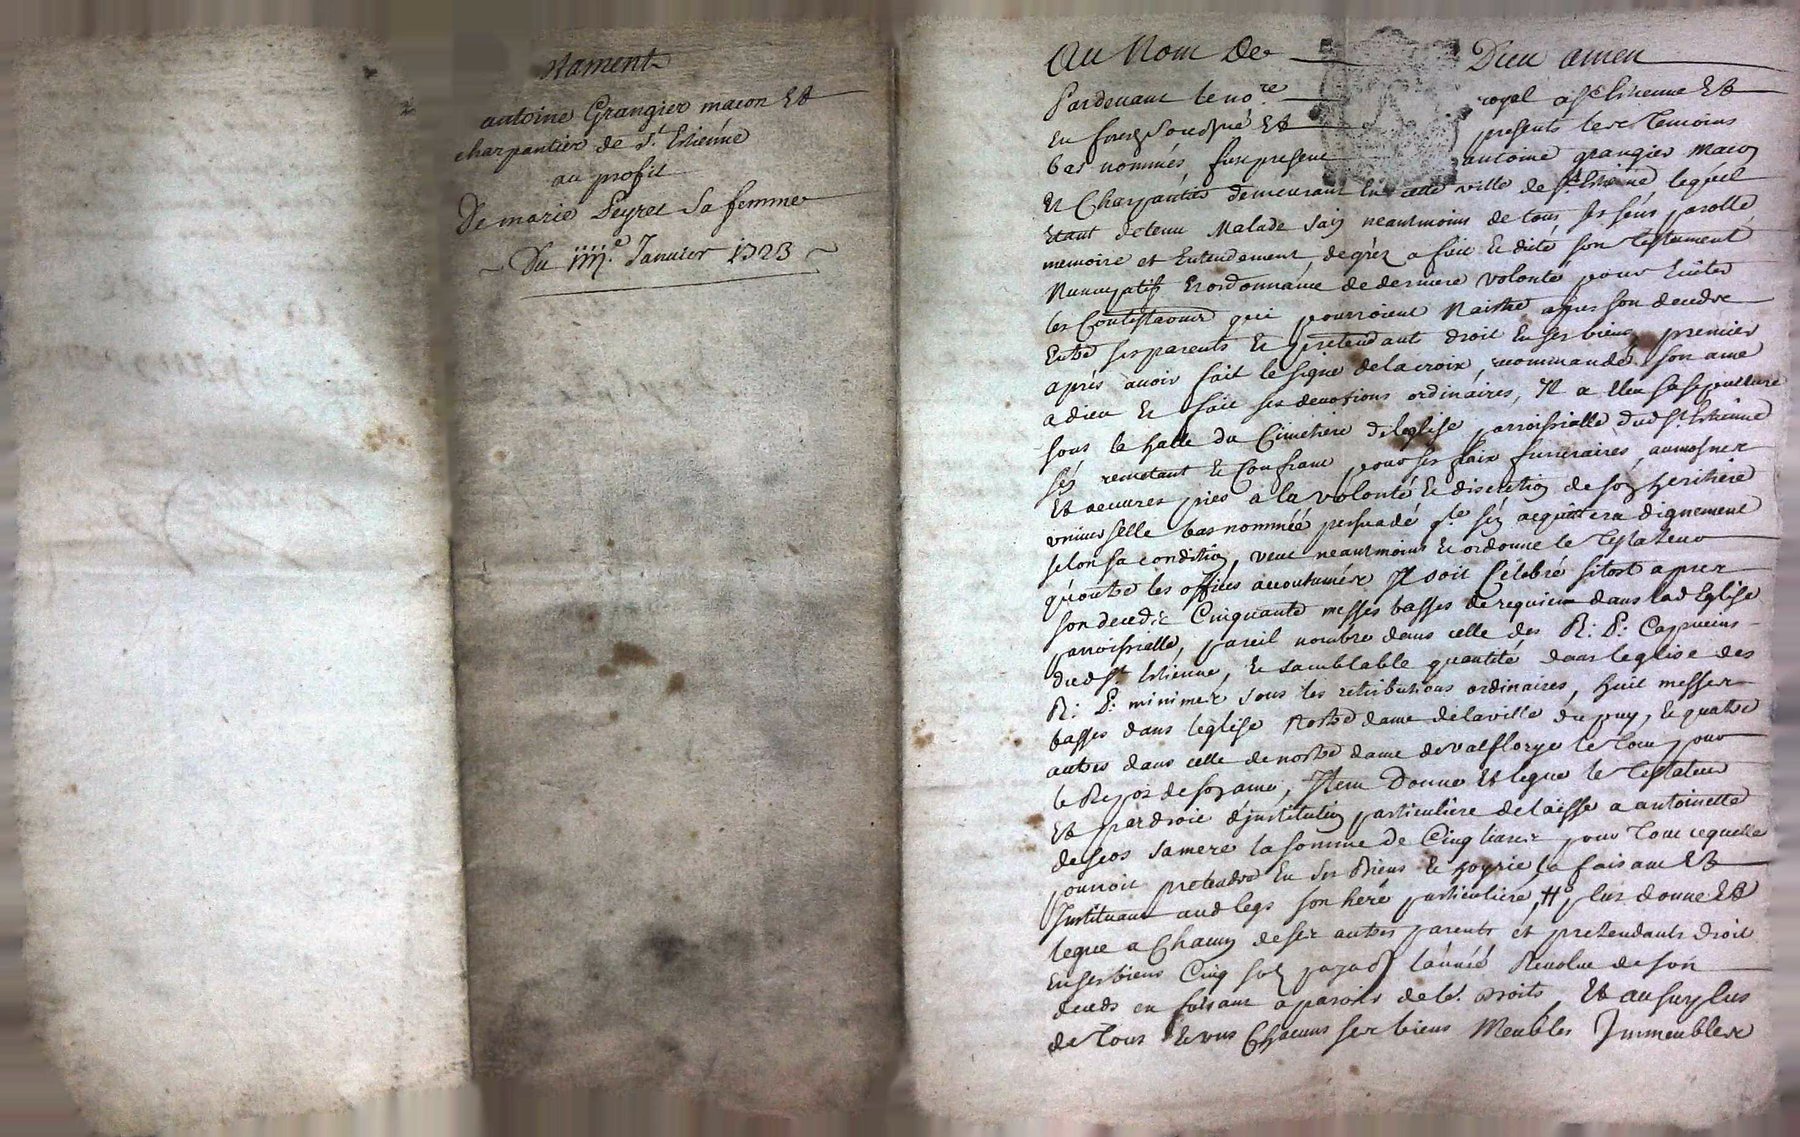 stament
antoine Grangier macon Et
charpantier de St. Estiénne
au profit
De marie Peyret sa femme
Du IIIIe. Januier 1723
Au Nom de Dieu amen
Pardeuant le nore. royal a St Estienne Et
En forez soussigné Et presents les Temoins
bas nommés fut present antoine grangier Macon
Et Charpantier demeurant En cette ville de St Estienne, lequel
Etant detenu Malade sain neantmoins de tous ses séns parolle
memoire et Entendement de gréz a fait Et dicté son Testament
Nuncupatif Et ordonnance de derniere volonté pour Euiter
les Contestaons qui pourroient Naistre apres son decedz
Entre ses parents Et pretendant droit En ses biens, premier
aprés auoir fait le signe de la croix, recommandé son ame
a dieu Et fait ses deuotions ordinaires, Il a Eleu sa sepulture
sous le halle du Cimetiere de léglise parroissialle dud St. Estienne
sén remetant Et Confiant pour ses fraix funeraires, aumosnes
Et oeuures pies a la volonté Et discretion de son heritiere
vniuerselle bas nommée persuadé q.le sén acquittera dignement
selon sa condition, veut neantmoins Et ordonne le Testateur
qu'outre les offices accoutumés Il soit Celebré sitost apres
son decedz Cinquante messes basses de requiem dans lad Eglise
parroissialle, pareil nombre dans celle des R: P: Capucins
dud St. Estienne, Et samblable quantité dans leglise des
R: P: minimes sous les retributions ordinaires, huit messes
basses dans leglise Nostre dame de la ville du puy, Et quatre
autres dans celle de nostre dame de valflorye le Tout pour
le Repos de son ame, Item Donne Et legue le Testateur
Et par droit d'jnstitution particuliere delaisse a antoinette
descos sa mere la somme de Cinq liures pour Tout ce quelle
pourroit pretendre En ses Biens Et hoyrie la faisant Et
Jnstituant aud legs son hére. particuliere, Plus donne Et
legue a Chacun de ses autres parents et pretendants droit
En ses biens Cinq solz payables lánnéé Reuolue de son
deceds en faisant aparoir de le. droits, Et au surplus
de Tous Et vns Chacuns ses biens Meubles Jmmeubles